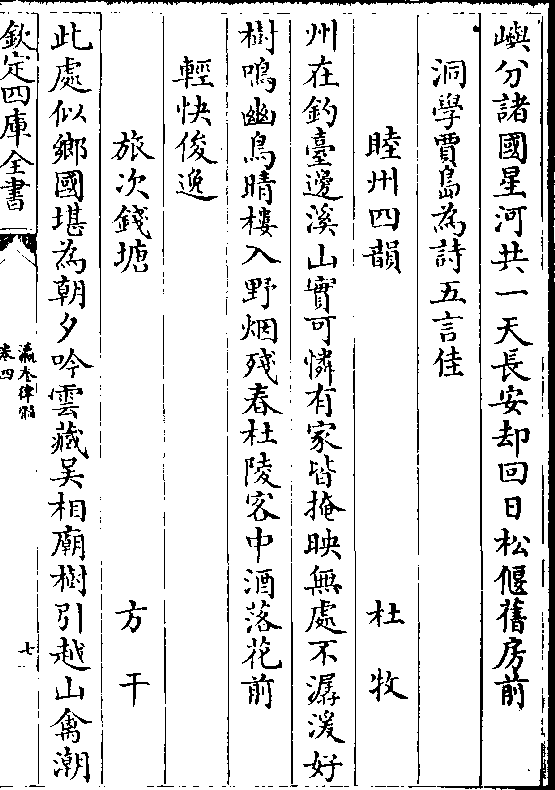 嶼分諸國星河共一天長安却回日松偃舊房前
洞學賈島為詩五言佳
睦州四韻 杜牧
州在釣臺邊溪山實可憐有家皆掩映無處不潺湲好
樹鳴幽鳥晴樓入野烟殘春杜陵客中酒落花前
輕快俊逸
旅次錢塘 方干
此處似鄉國堪為朝夕吟雲藏吴相廟樹引越山禽潮
欽定四庫全書
瀛奎律髓
卷四
七